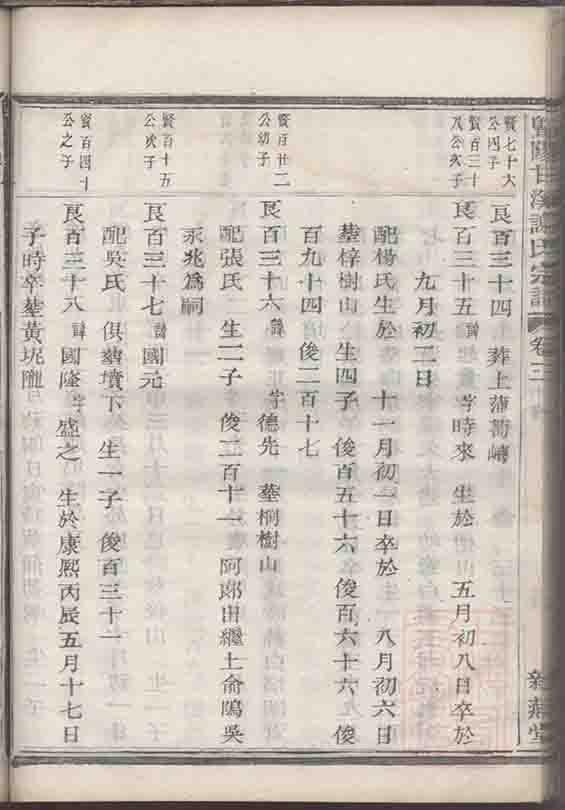 暨陽甘溪謝氏宗譜 卷三 敘𦶜堂
賢七十大
公四子
良百三十四 葬上蒲萄崎
賢百三十
八公次子
良百三十五 諱 字時來 生於 五月初八日卒於
九月初二日
配楊氏生於 十一月初一日卒於 八月初六日
塟梓樹山 生四子 俊百五十六 俊百六十六 俊
百九十四 俊二百十七
賢百廿二
公幼子
良百三十六 諱 字德先 塟桐樹山
配張氏 生二子 俊二百十一 阿郞出繼上俞隖吳
永兆爲嗣
賢百十五
公次子
良百三十七 諱國元
配吳氏 俱塟墳下 生一子 俊百三十一
賢百四十
公之子
良百三十八 諱國隆 字盛之 生於康熙丙辰五月十七日
子時卒塟黃坭隴